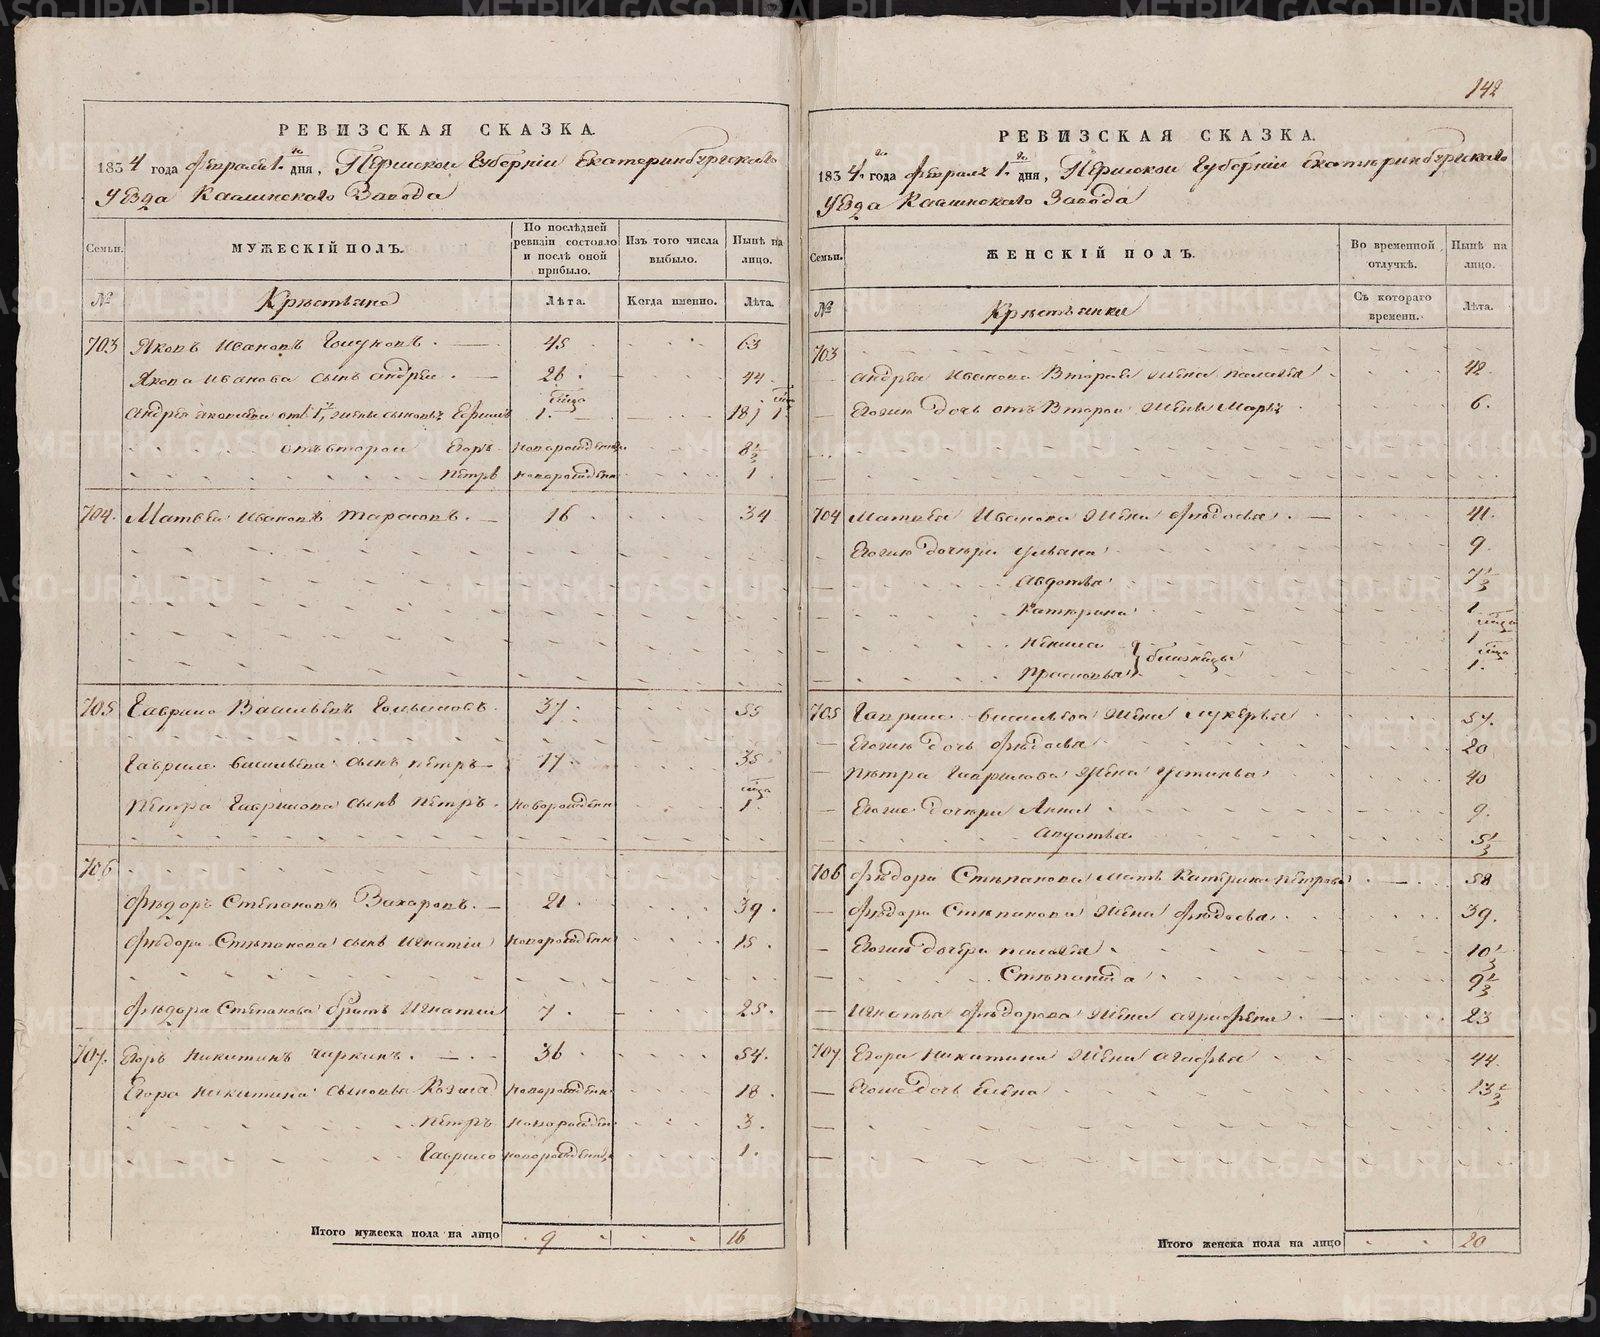 142
РЕВИЗСКАЯ СКАЗКА.
1834 года февраля 1го дня, Пермской Губерніи Екатеринбургскаго
Уѣзда Каслинскаго Завода
Семьи.
МУЖЕСКІЙ ПОЛЪ.
По послѣдней ревизіи состояло и послѣ оной прибыло.
Изъ того числа выбыло.
Нынѣ на лицо.
№
Крестьяне
Лѣта.
Когда именно.
Лѣта.
703 Яковъ Ивановъ 45 63
Якова Иванова сынъ Андрей 26 44
Андрея Яковлева отъ 1й жены сыновья Ефимъ 1 18 1
отъ второй Егоръ новорожденъ 8 1/2
Петръ новорожденъ 1
704. Матвѣй Ивановъ Тарасовъ. 16 34
705 Гаврило Васильевъ 37 55
Гаврила Васильева сынъ Петръ 17 35
Петра Гаврилова сынъ Петръ. новорожденъ 1
706
Федоръ Степановъ Захаровъ. 21 39
Федора Степанова сынъ Игнатій новорожденъ 15
Федора Степанова братъ Игнатій 7 25
707. Егоръ Никитинъ Чиркинъ. 36 54
Егора Никитина сыновья Козма новорожденъ 18
Петръ новорожденъ 3
Гаврило новорожденъ 1
Итого мужеска пола на лицо 9 16
РЕВИЗСКАЯ СКАЗКА.
1834го года февраля 1го дня, Пермской Губерніи Екатеринбургскаго
Уѣзда Каслинскаго Завода
Семьи.
ЖЕНСКІЙ ПОЛЪ.
Во временной отлучкѣ.
Нынѣ на лицо.
№
Крестьянки
Съ котораго времени.
Лѣта.
703
Андрея Иванова Вторая жена Палагея 42
Егожъ дочь отъ Второй жены Марья 6.
704 Матвѣя Иванова жена Федосья 41
Егожъ дочери Ульяна 9
Авдотья 7 1/2
Катерина 1
1
Прасковья близнецы 1
705 Гаврила Васильева жена Лукерья 57.
Егожъ дочь Федосья 20
Петра Гаврилова жена Устинья 40
Егоже дочери Анна 9.
Авдотья 5 1/2
706 Федора Степанова Мать Катерина Петрова 58
Федора Степанова жена Федосья 39.
Егожъ дочери Палагея 10 1/2
Степанида 9 1/2
Игнатья Федорова жена Аграфена 23
707 Егора Никитина жена Агафья 44
Егоже дочь Елена 13 1/2
Итого женска пола на лицо 20
METRIKI.GASO-URAL.RU